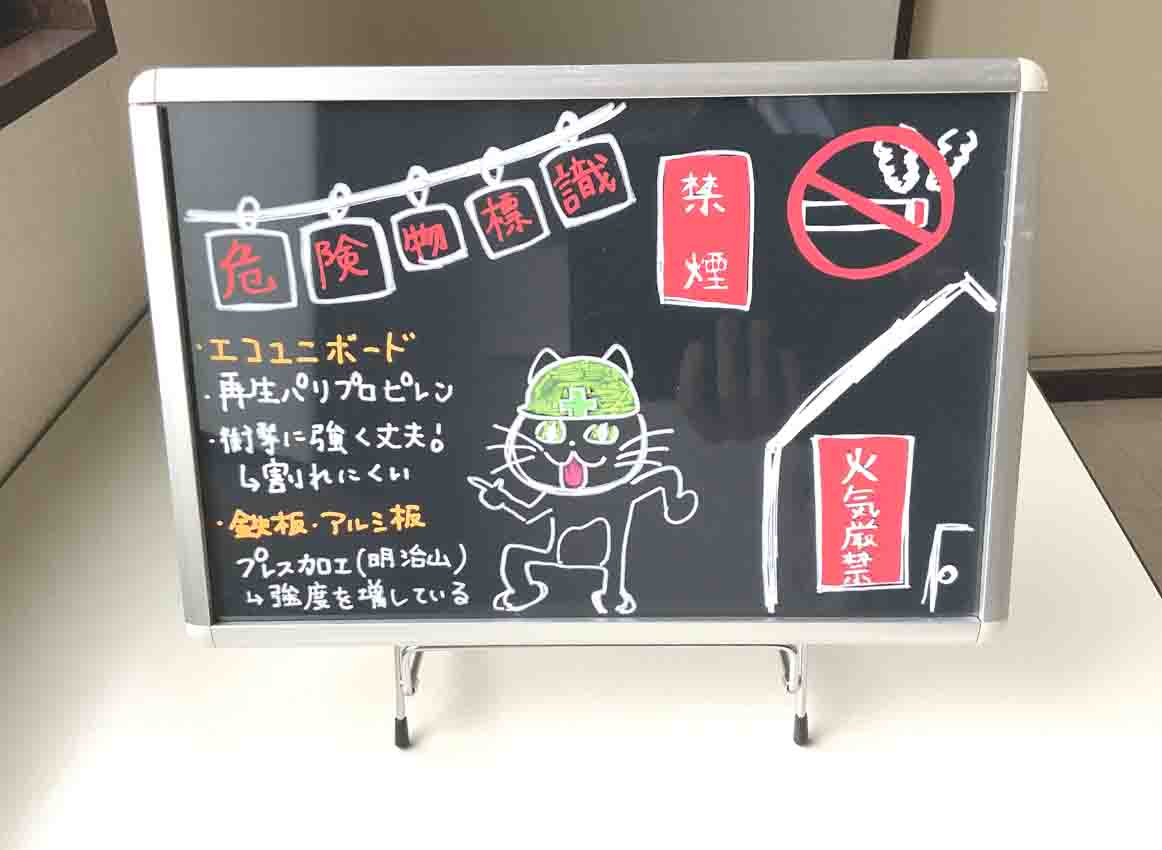 危険物標識
禁煙
・エコユニボード
・再生パリプロピレン
・衝撃に強く丈夫!
↳割れにくい
・鉄板・アルミ板
プレス加工(明治山)
↳強度を増している
火気厳禁